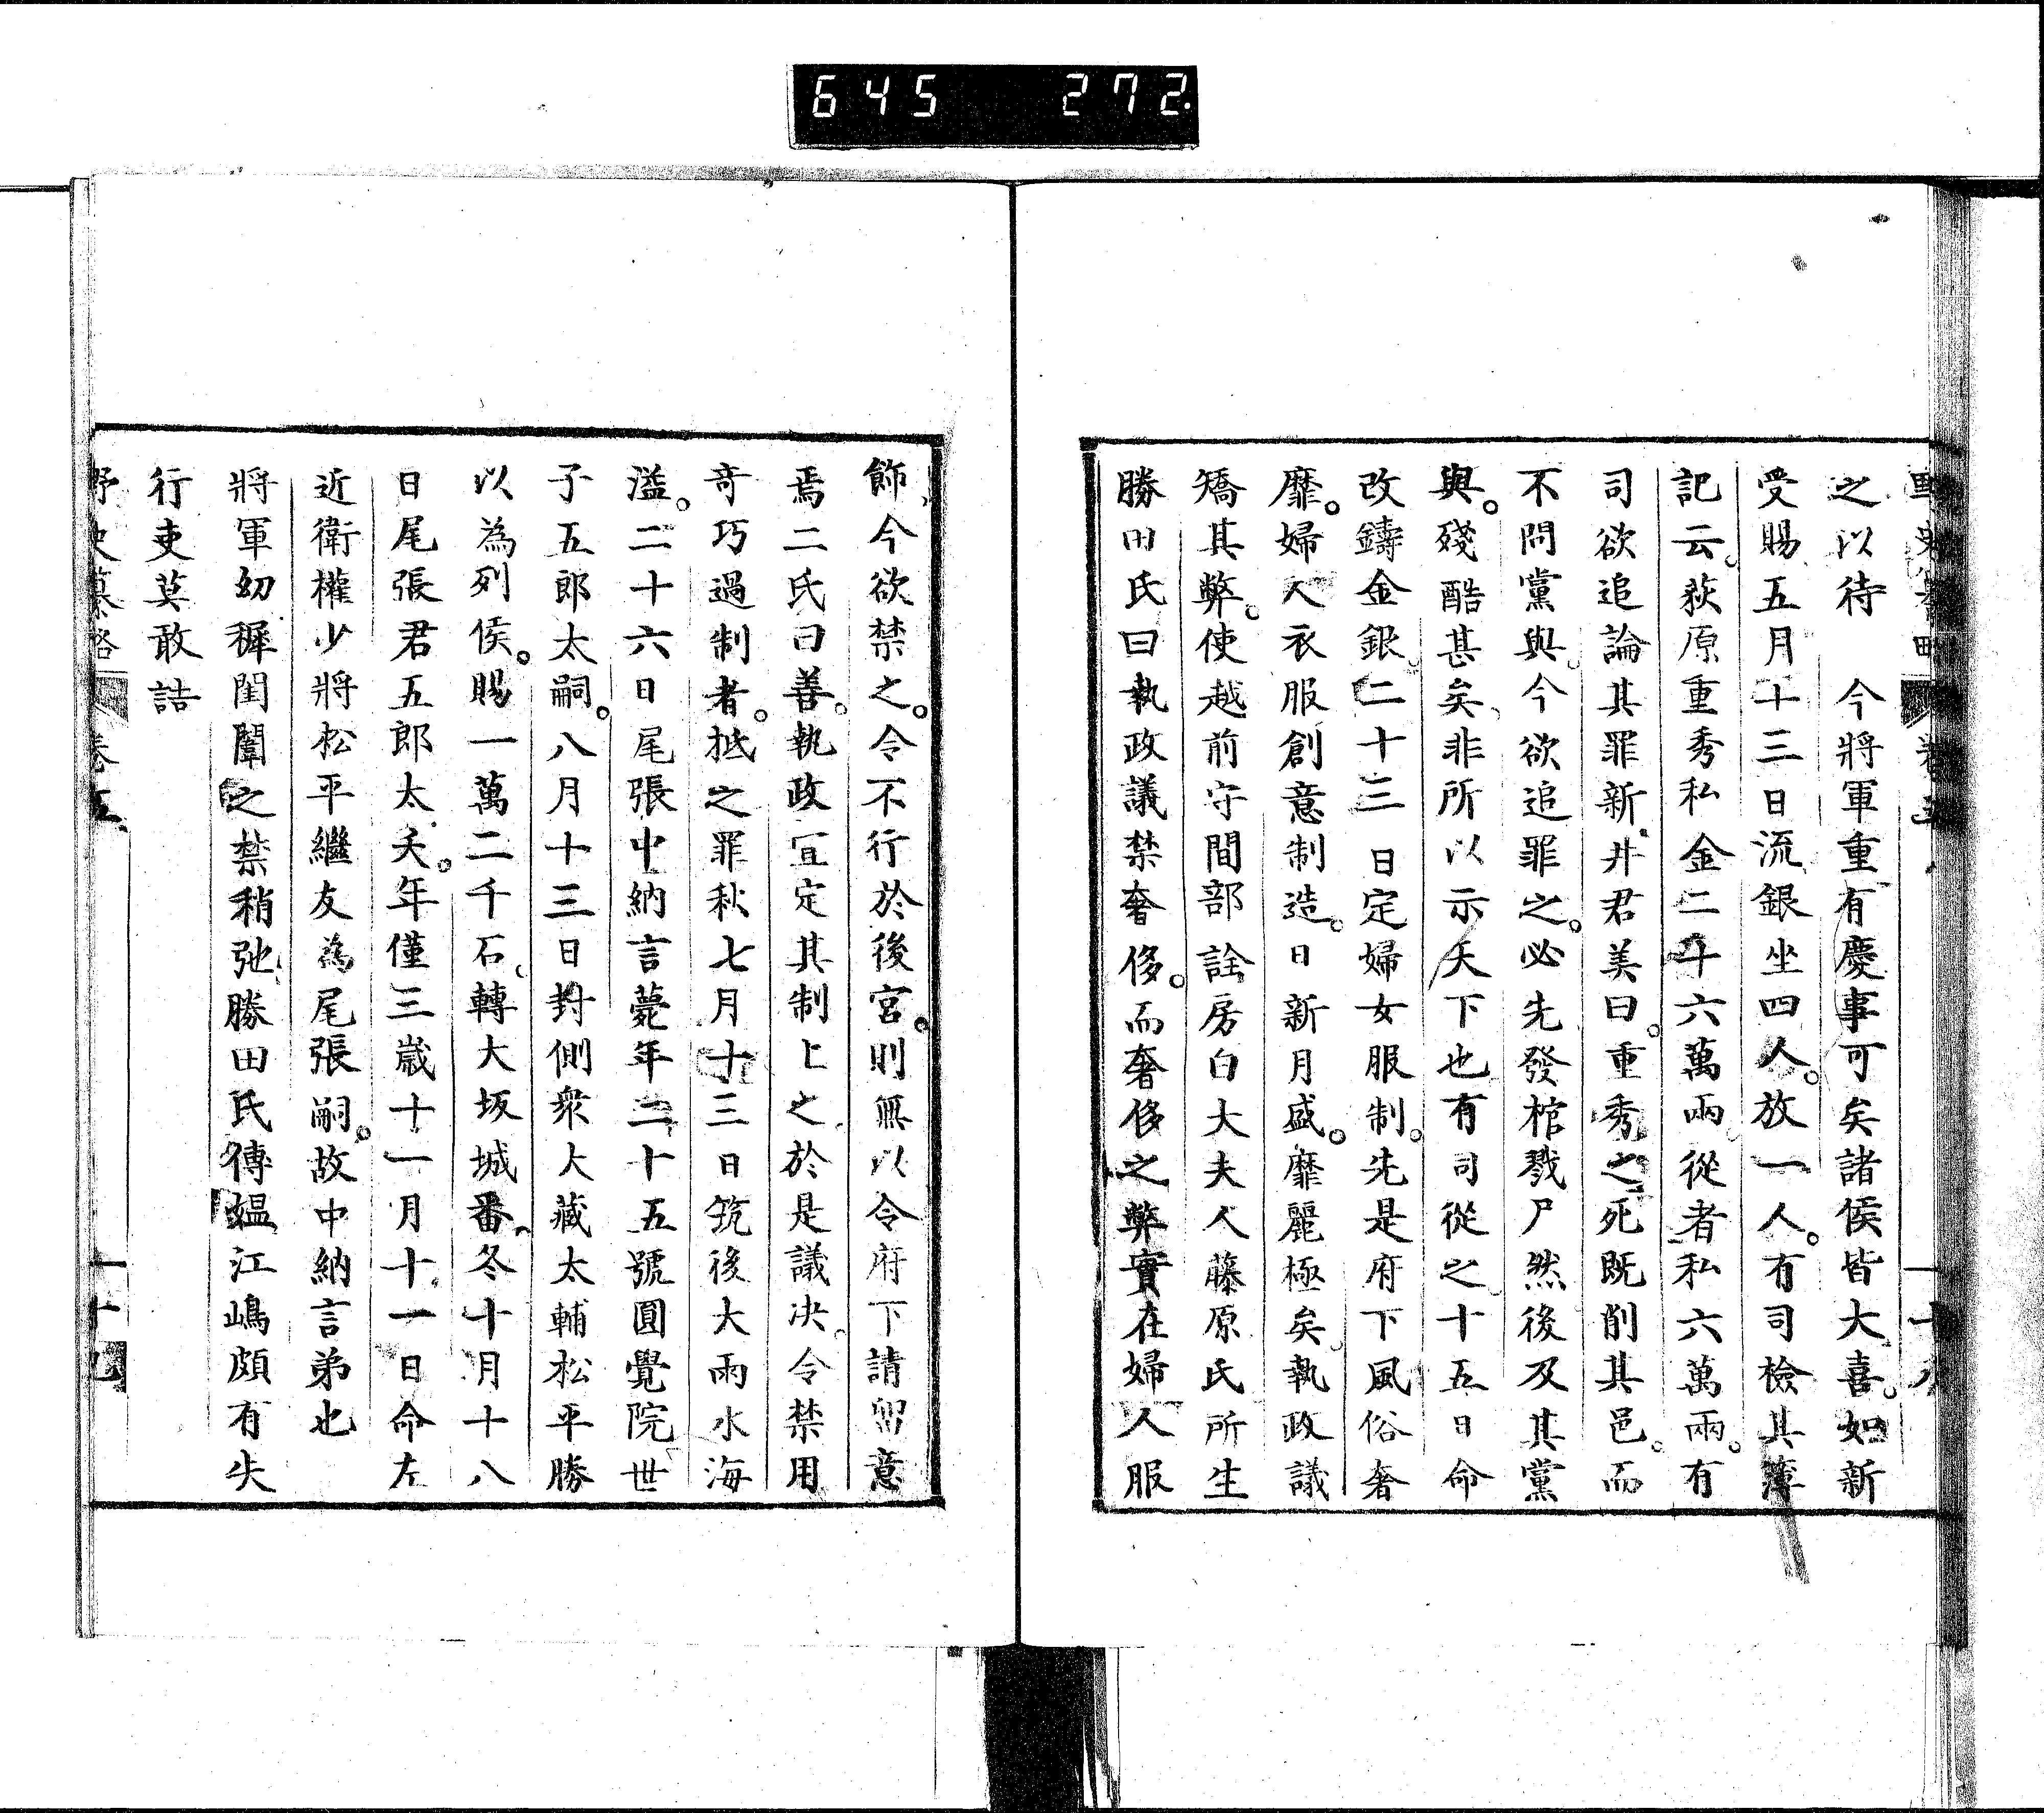 645 272.
之以待　今將軍重有慶事可矣諸侯皆大喜。如新
受賜五月十三日流銀坐四人。放一人。有司檢其簿
記云。荻原重秀私金二十六萬兩。從者私六萬兩。有
司欲追論其罪新井君美曰。重秀之死既削其邑。而
不問黨與。今欲追罪之。必先發棺戮尸然後及其黨
與。殘酷甚矣。非所以示天下也有司從之十五日命
改鑄金銀。二十三日定婦女服制。先是府下風俗奢
靡。婦人衣服創意制造。日新月盛。靡麗極矣。執政議
矯其弊。使越前守間部詮房白大夫人藤原氏所生
勝田氏曰執政議禁奢侈。而奢侈之弊實在婦人服
飾、今欲禁之。令不行於後宮。則無以令府下請留意
焉二氏曰善。執政宜定其制上之於是議决。令禁用
奇巧過制者。抵之罪秋七月十三日筑後大雨水海
溢。二十六日尾張中納言薨年二十五號圓覺院世
子五郎太嗣。八月十三日封側衆大藏太輔松平勝
以為列侯。賜一萬二千石。轉大坂城番。冬十月十八
日尾張君五郎太夭。年僅三歲十一月十一日命左
近衛權少將松平繼友為尾張嗣。故中納言弟也
將軍幼穉閨闈之禁稍弛。勝田氏傅媼江嶋頗有失
行吏莫敢詰
野史纂略　卷五　十九